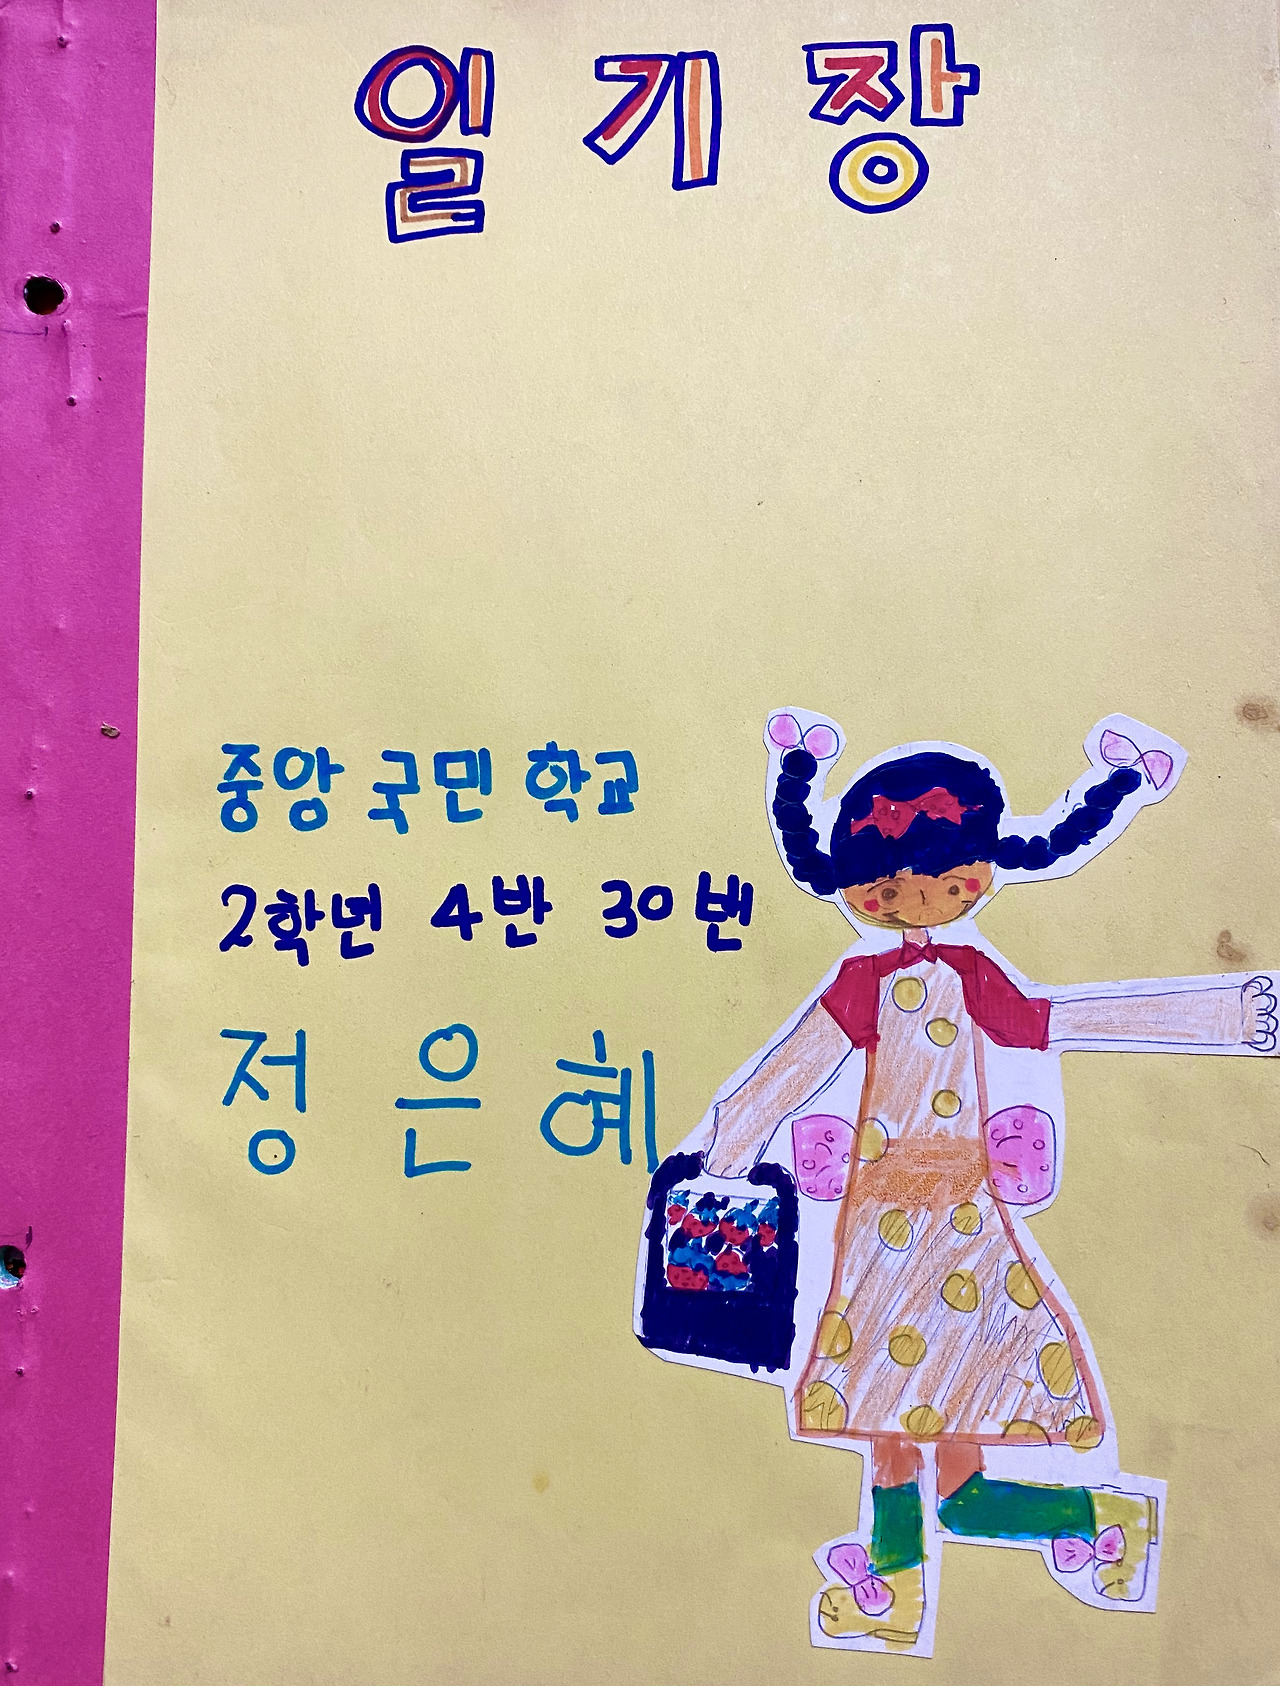 일기장
중앙 국민 학교
2학년 4반 30번
정은혜